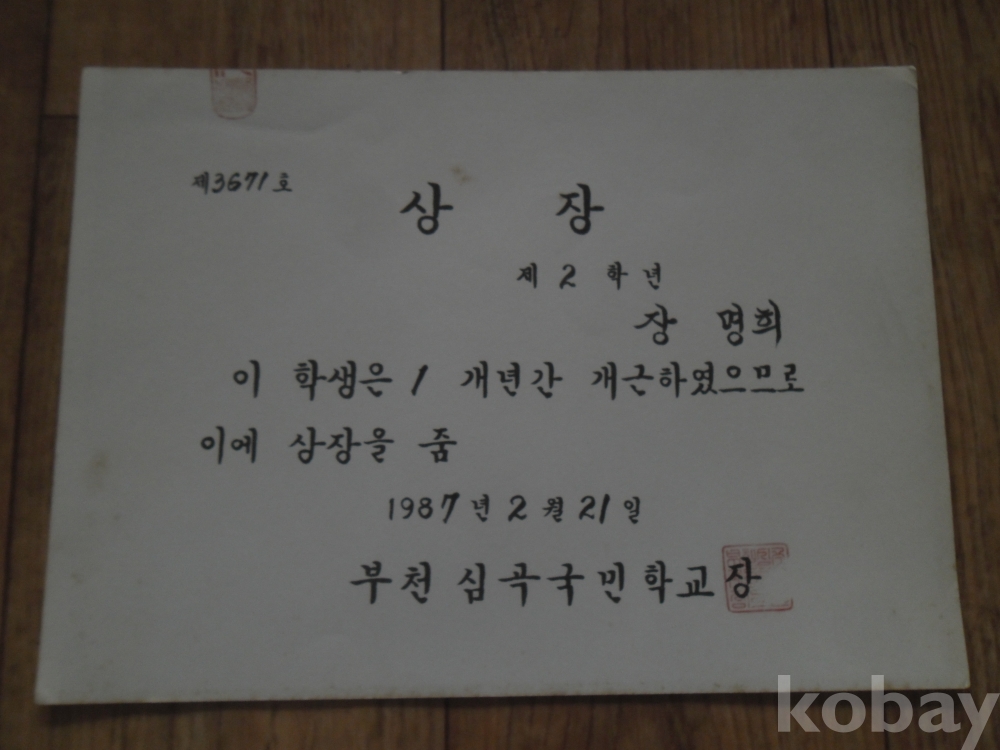 제3671호
상 장
제 2 학년
장 명희
이 학생은 1 개년간 개근하였으므로
이에 상장을 줌
1987년 2월 21일
부천심곡국민학교장
kobay